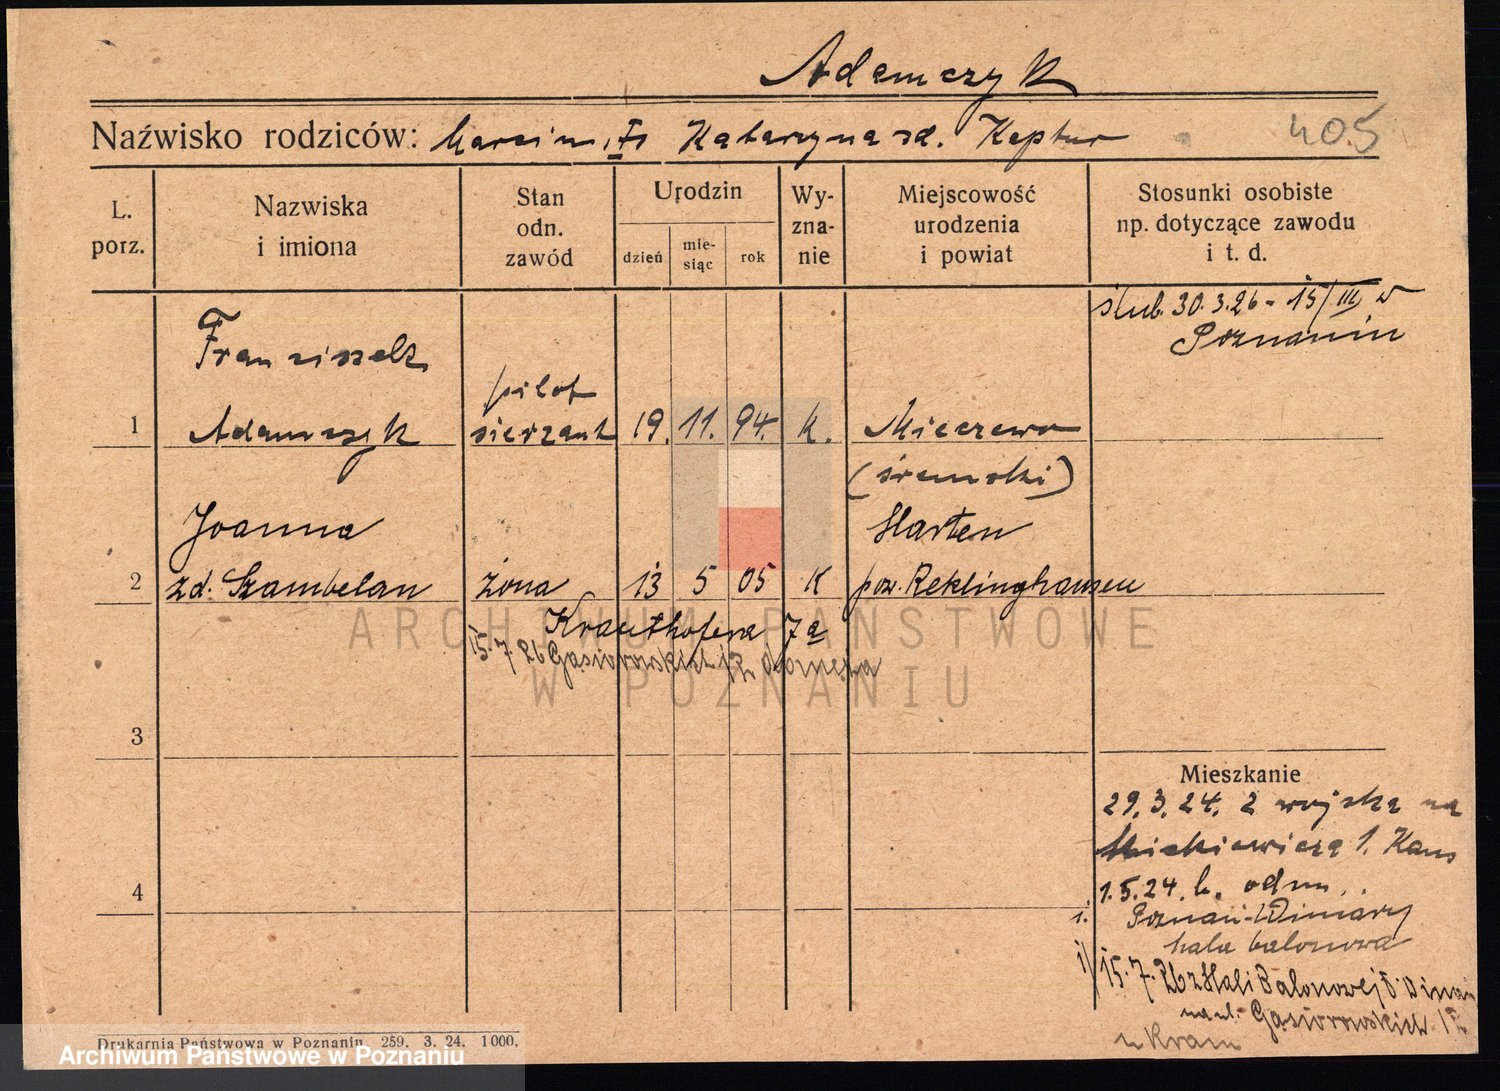 Adamczyk
Naźwisko rodziców: Marcin, Katarzyna zd. Kaptur
405
L. porz.
Nazwiska i imiona
Stan odn. zawód
Urodzin
dzień
mie-siąc
rok
Wy-zna-nie
Miejscowość urodzenia i powiat
Stosunki osobiste np. dotyczące zawodu i t. d.
ślub. 30.3.26 - 15/III w
Poznaniu
Franciszek
pilot
1 Adamczyk sierżant 19. 11. 94. k. Mieczewo
(śremski)
Joanna Harten
2 zd. Szambelan żona 13 5 05 K pow. Reklinghausen
Krauthofera 7a
15.7.26 Gasiorowskich 12
3
Mieszkanie
29.3.24. z wojska na
Mickiewicza 1.
4
1.5.24. k. odm.
Poznań-Winiary
hala balonowa
15.7.26 z Hali Balonowej
na ul. Gasiorowskich 12
u Kram
Drukarnia Państwowa w Poznaniu 259. 3. 24. 1000.
ARCHIWUM PAŃSTWOWE
W POZNANIU
Archiwum Państwowe w Poznaniu